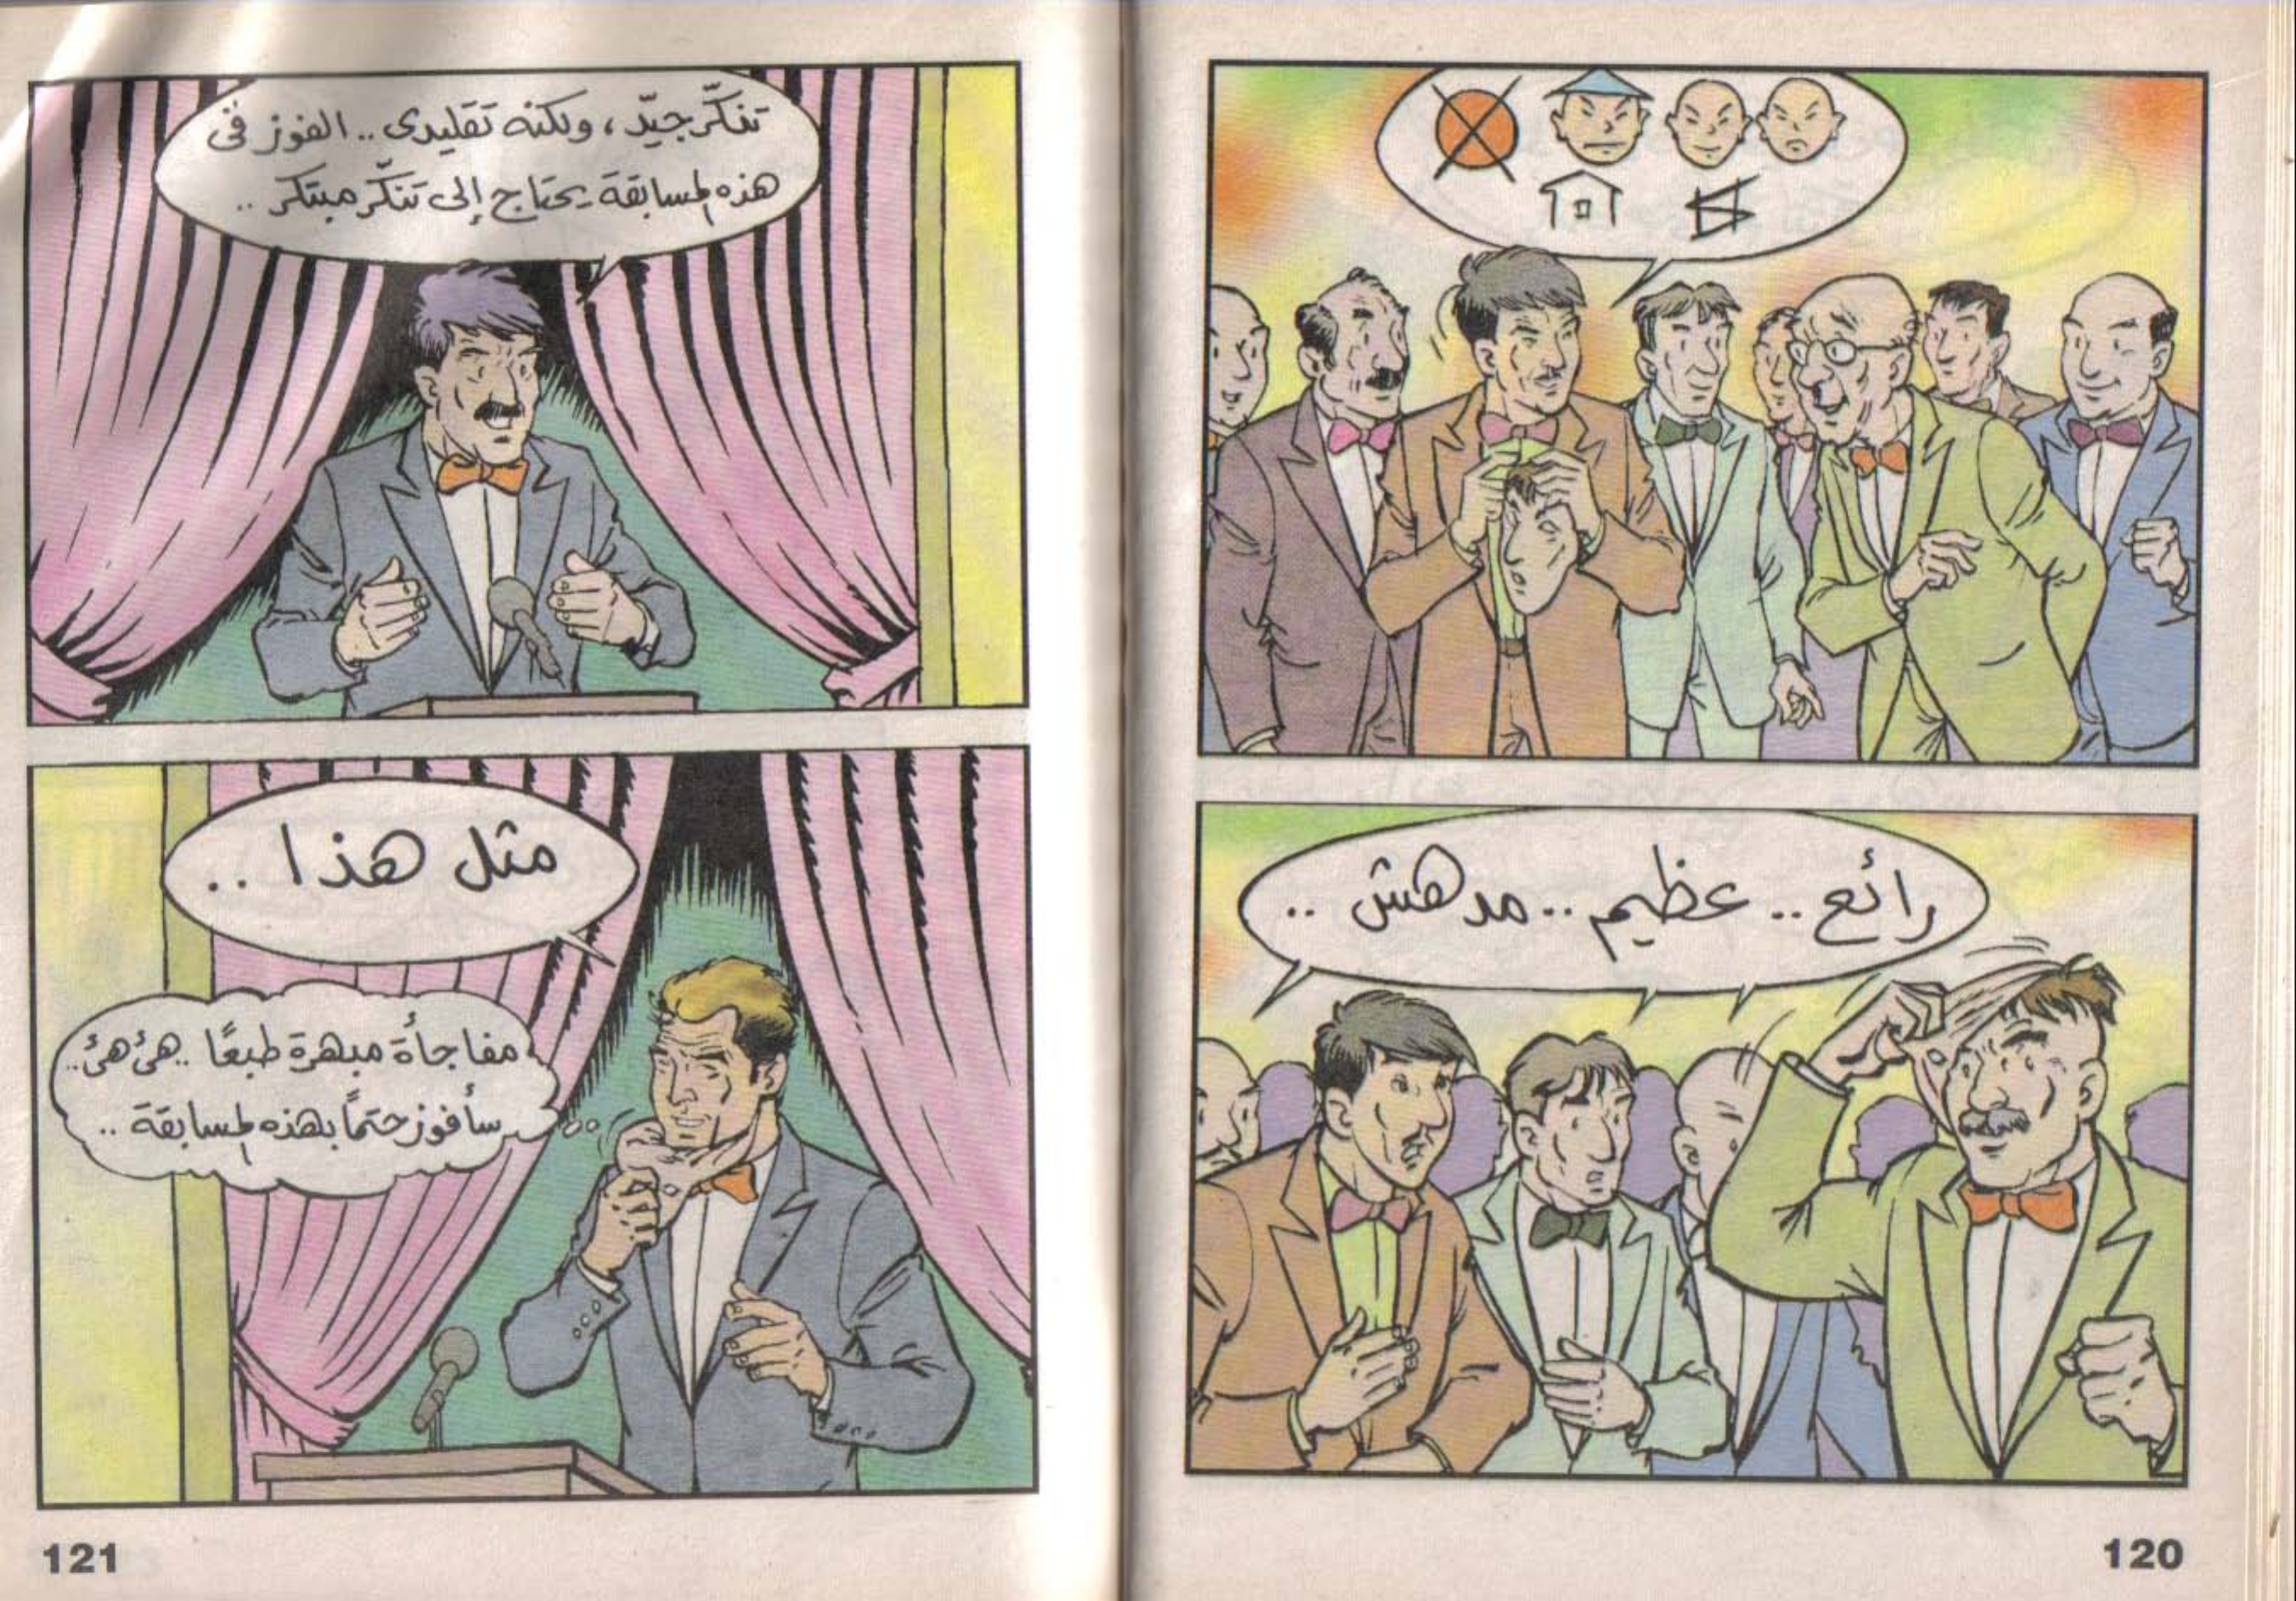 رائع.. عظيم.. مدهش..
120
تنكّر جيّد، ولكنه تقليدى.. الفوز فى
هذه المسابقة يحتاج إلى تنكّر مبتكر..
مثل هذا..
مفاجأة مبهرة طبعًا.. هئ هئ..
سأفوز حتمًا بهذه المسابقة..
121